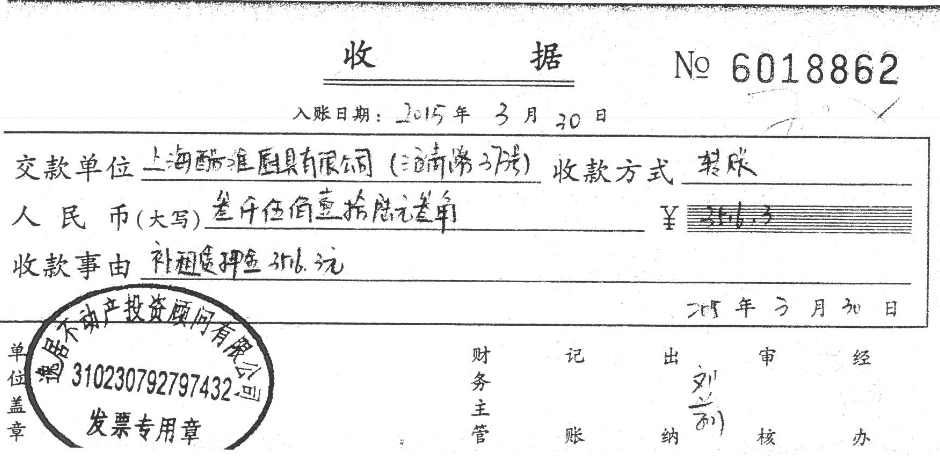 收 据
№ 6018862
入账日期：2015年 3月 30日
交款单位 上海 厨具有限公司 收款方式 转账
人民币(大写) 叁仟伍佰壹拾陆元叁角 ¥ 3516.3
收款事由 补租赁押金3516.3元
2015年 3月 30日
单位盖章
逸居不动产投资顾问有限公司
310230792797432
发票专用章
财务主管 记账 出纳 刘 审核 经办